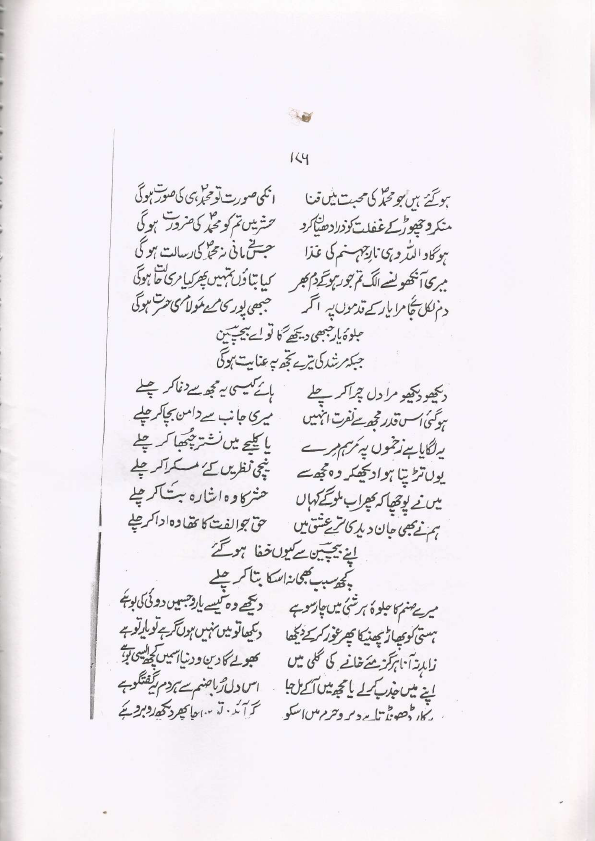 ۱۸۹
ہوگئے ہیں جو محمدؐ کی محبت میں فنا انکی صورت تو محمدؐ ہی کی صورت ہوگی
منکرو چھوڑ کے غفلت کو ذرا دھیان کرو حشر میں تم کو محمدؐ کی ضرورت ہوگی
ہوگا واللہ وہی نارِ جہنم کی غذا جس نے مانی نہ محمدؐ کی رسالت ہوگی
میری آنکھوں سے الگ تم جو ہوگے دم بھر کیا بتاؤں تمہیں پھر کیا مری حالت ہوگی
دم نکل جائے مرا یار کے قدموں پہ اگر جبھی پوری مرے مولا مری حسرت ہوگی
جلوۂ یار جبھی دیکھے گا تو اے بیچین
جبکہ مرشد کی ترے تجھ پہ عنایت ہوگی
دیکھو دیکھو مرا دل چرا کر چلے ہائے کیسی یہ مجھ سے دغا کر چلے
ہوگئی اس قدر مجھ سے نفرت انہیں میری جانب سے دامن بچا کر چلے
یہ لگایا ہے زخموں پہ مرہم مرے یا کلیجے میں نشتر چبھا کر چلے
یوں تڑپتا ہوا دیکھکر وہ مجھ سے نیچی نظریں کئے مسکرا کر چلے
میں نے پوچھا کہ پھر اب ملو گے کہاں حشر کا وہ اشارہ بتا کر چلے
ہم نے بھی جان دیدی ترے عشق میں حق جو الفت کا تھا وہ ادا کر چلے
اپنے بیچین سے کیوں خفا ہو گئے
کچھ سبب بھی نہ اسکا بتا کر چلے
میرے صنم کا جلوہ ہر شئ میں چار سو ہے دیکھے وہ کیسے یارو جسمیں دوئی کی بو ہے
ہستی کو پھاڑ پھینکا پھر غور کر کے دیکھا دیکھا تو میں نہیں ہوں گر ہے تو یار تو ہے
زاہد نہ آنا ہرگز مئے خانے کی گلی میں بھولے گا دین و دنیا اسمیں کچھ ایسی بو ہے
اپنے میں جذب کرلے یا مجھ میں آکے مل جا اس دل رُبا صنم سے ہر دم یہ گفتگو ہے
بیکار ڈھونڈتا ہے دیر و حرم میں اسکو پھر دیکھ روبرو ہے